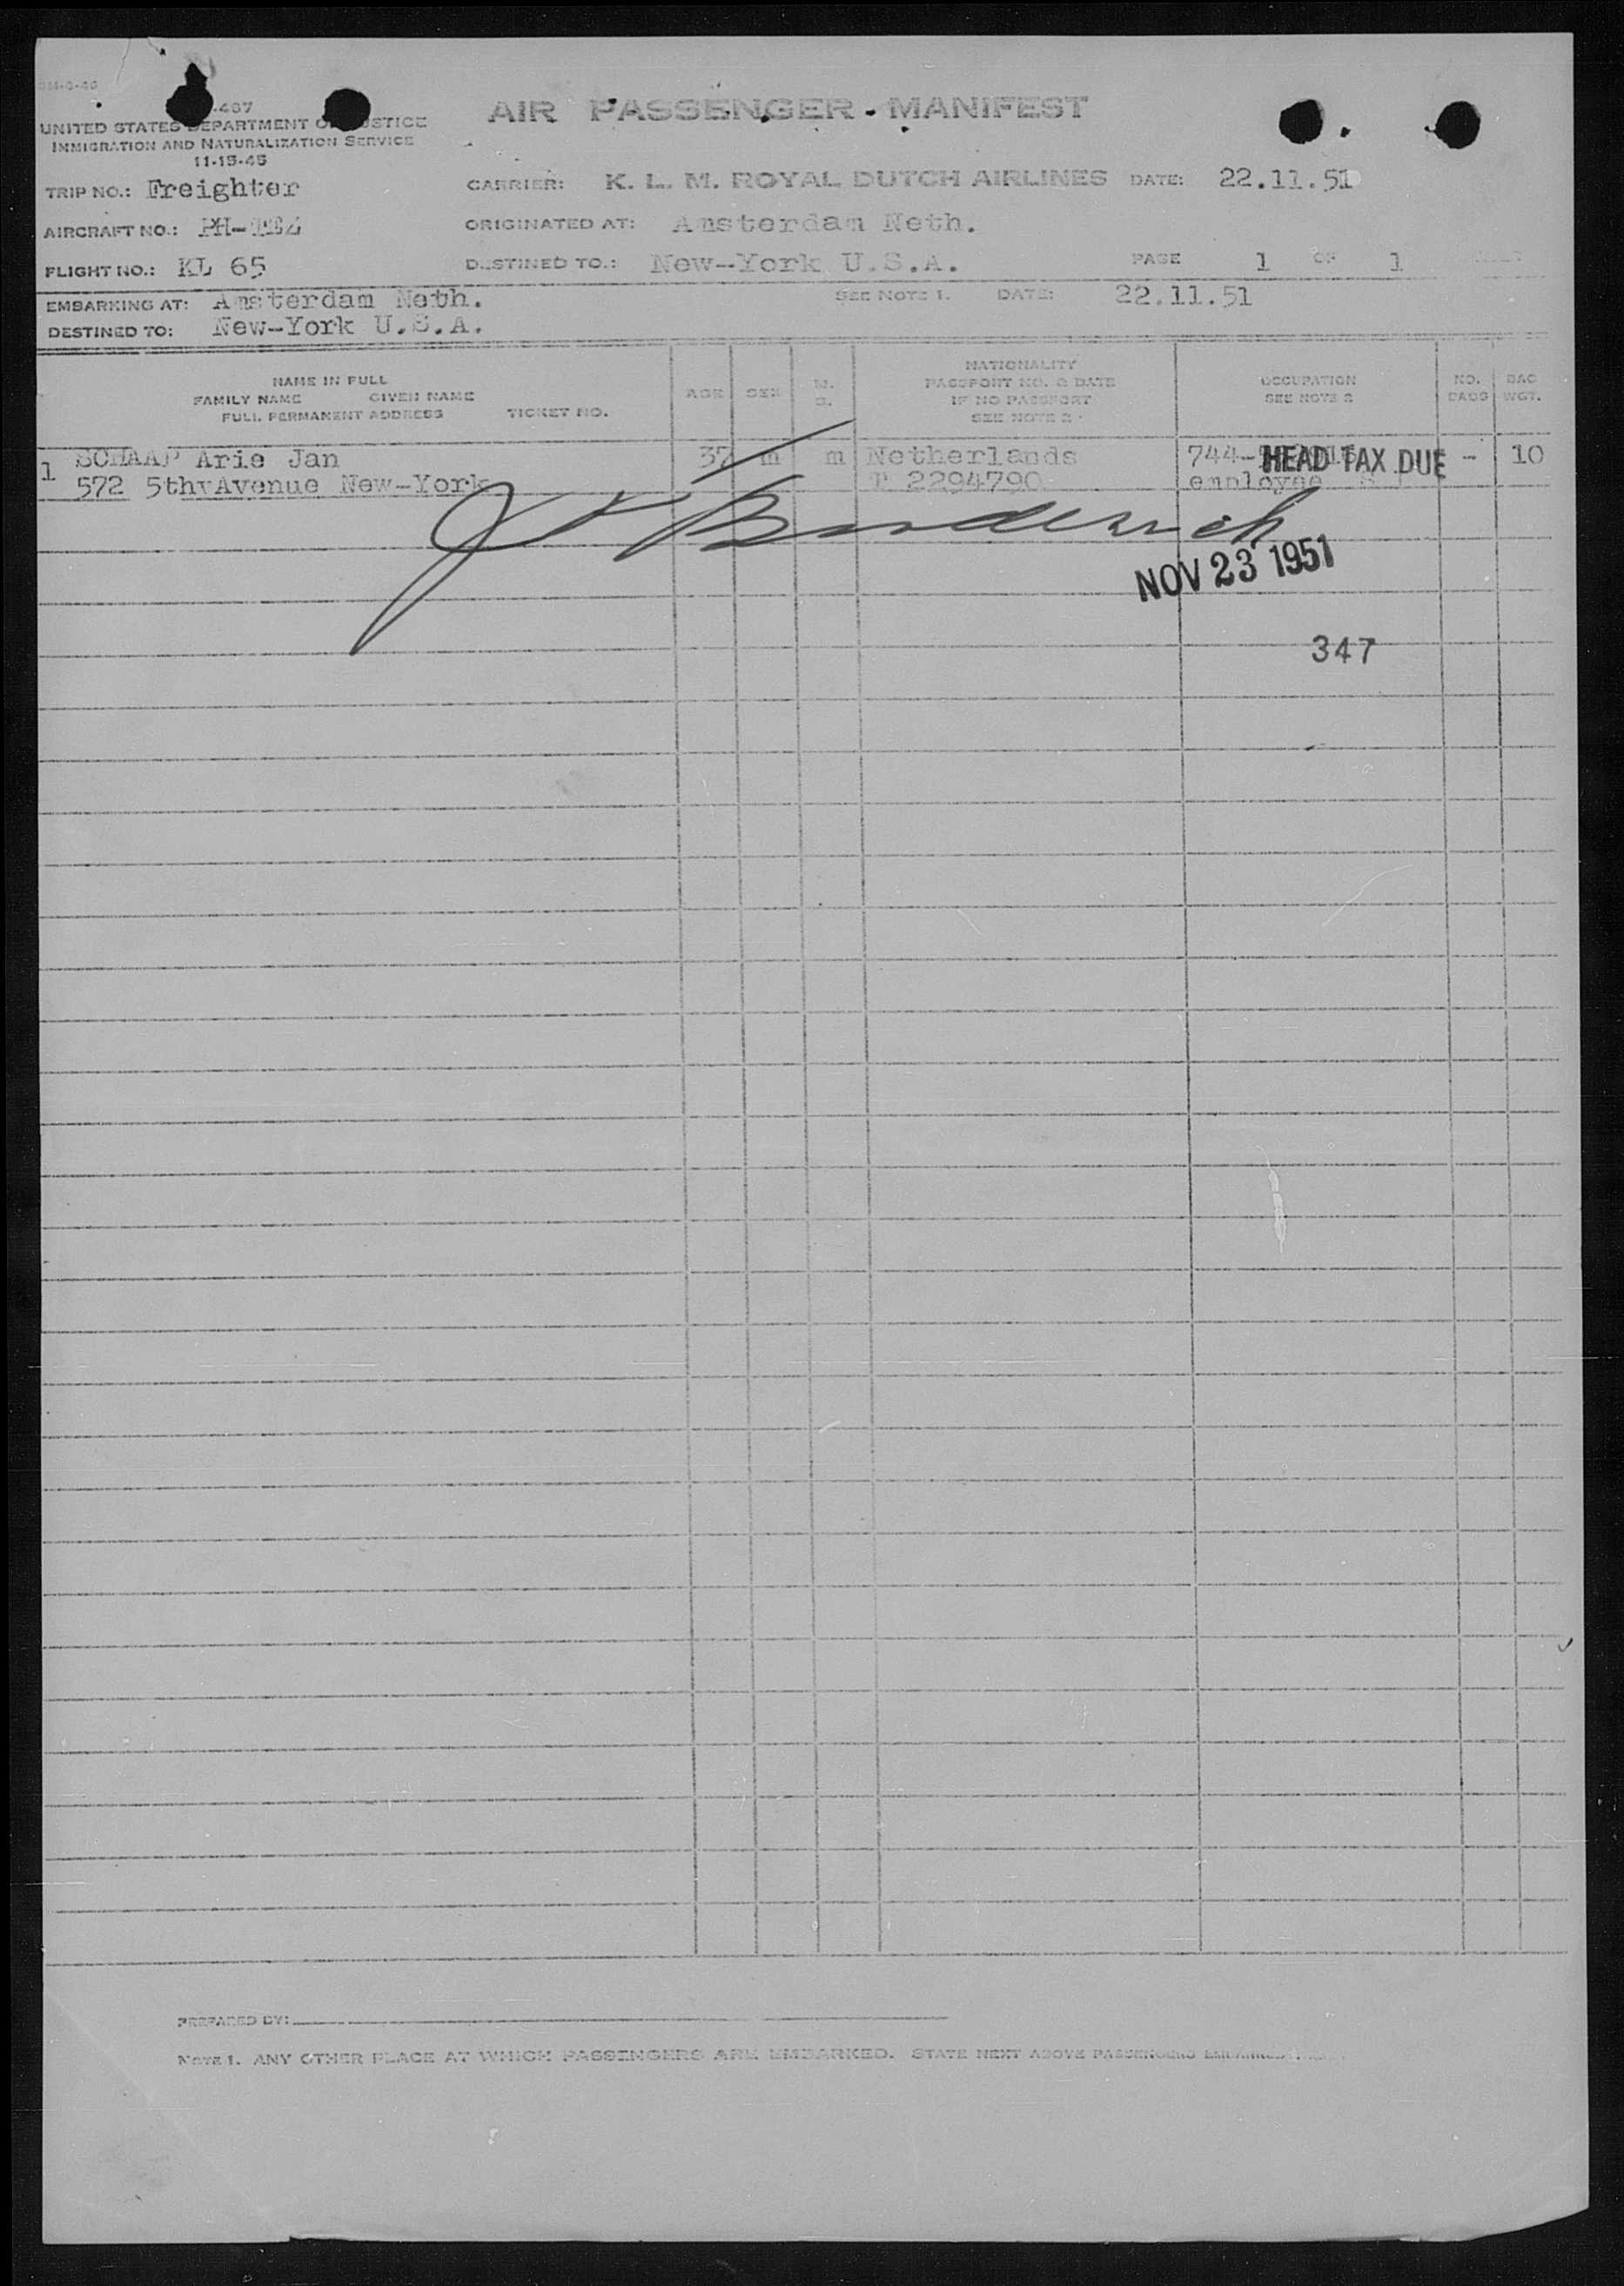 UNITED STATES DEPARTMENT OF JUSTICE
IMMIGRATION AND NATURALIZATION SERVICE
11-15-45
AIR PASSENGER MANIFEST
TRIP NO.: Freighter
CARRIER: K. L. M. ROYAL DUTCH AIRLINES DATE: 22.11.51
AIRCRAFT NO.: PH-
ORIGINATED AT: Amsterdam Neth.
FLIGHT NO.: KL 65
DESTINED TO.: New-York U.S.A. PAGE 1 OF 1
EMBARKING AT: Amsterdam Neth. SEE NOTE 1. DATE: 22.11.51
DESTINED TO: New-York U.S.A.
NAME IN FULL
FAMILY NAME GIVEN NAME
FULL PERMANENT ADDRESS TICKET NO.
AGE
SEX
M.
S.
NATIONALITY
PASSPORT NO. & DATE
IF NO PASSPORT
SEE NOTE 2
OCCUPATION
SEE NOTE 2
NO.
BAGS
BAG
WGT.
1 SCHAAP Arie Jan 37 m m Netherlands 744- HEAD TAX DUE - 10
572 5thvAvenue New-York 2294790 employee
NOV 23 1951
347
PREPARED BY:
NOTE 1. ANY OTHER PLACE AT WHICH PASSENGERS ARE EMBARKED. STATE NEXT ABOVE PASSENGERS